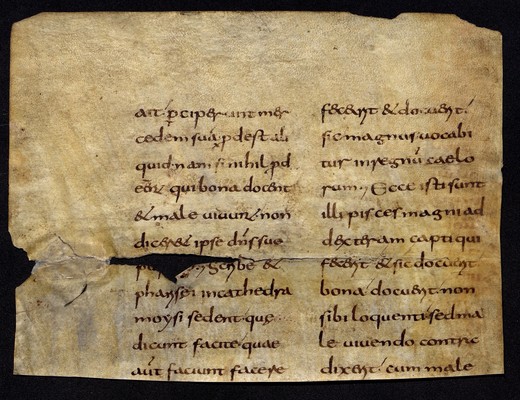 aūt p̄ciperunt mer
cedem suā p̄dest ali
quid nam si nihil p̄d
eēt qui bona docent
& male vivunt non
dicer& ipse dn̄s suę
scribę &
pharisei in cathedra
moysi sedent que
dicunt facite quae
aūt faciunt facere
fecerit & docuerit
sic magnus vocabi
tur in regnū caelo
rum Ecce isti sunt
illi pisces magni ad
dexteram capti qui
fecerit & sic docuerit
bona docuerit non
sibi loquenti sed ma
le vivendo contra
dixerit cum male